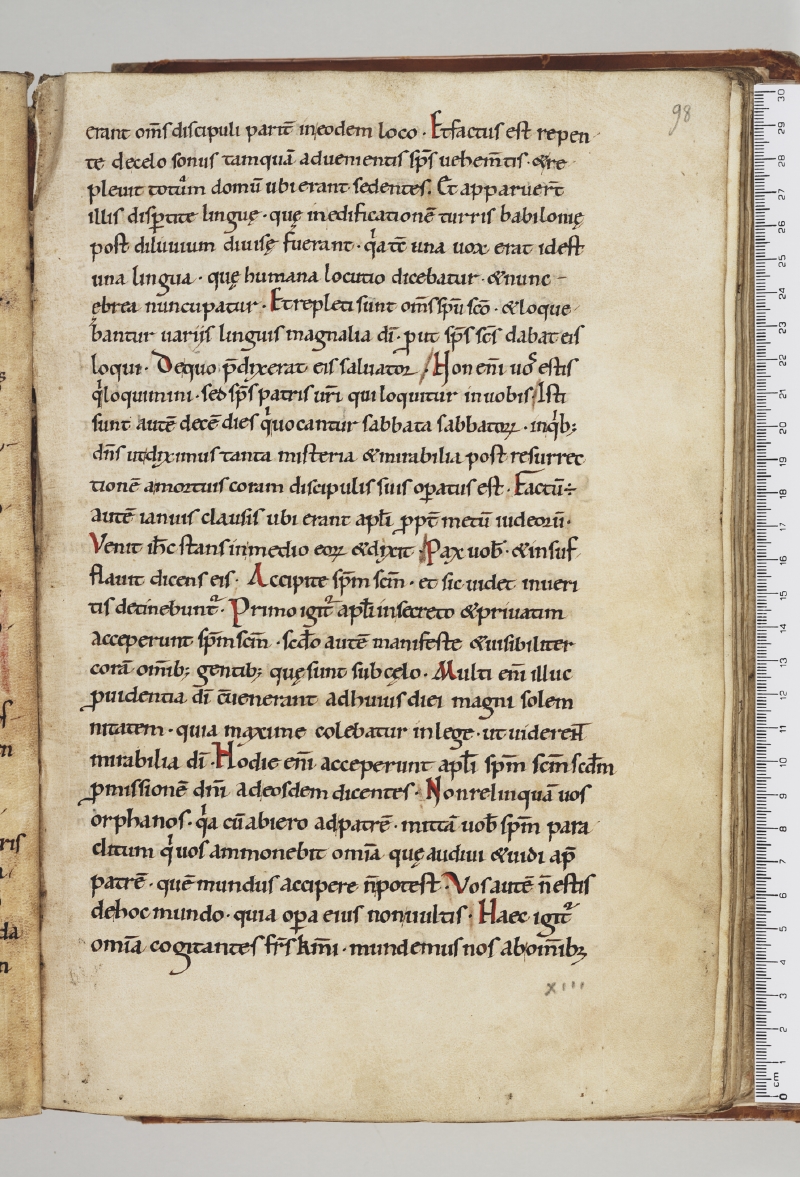 98
erant om̅s discipuli parit̅ in eodem loco · Et factus est repen
te de celo sonus tamquā aduenientis sp̅s uehem̅tis · & re
pleuit totūm domū ubi erant sedentes. Et apparuer̅t
illis disꝑtite linguę · quę in edificationē turris babilonię
post diluuium diuisę fuerant · q̍a t̅c una uox erat id est
una lingua · quę humana locutio dicebatur · & nunc –
ebrea nuncupatur · Et repleti sunt om̅s sp̅u sc̅o · & loque
bantur uarijs linguis magnalia di̅ · put sp̅s sc̅s dabat eis
loqui · De quo p̅dixerat eis saluator / Non eni̅ uos estis
q̍ loquimini · sed sp̅s patris ur̅i qui loquitur in uobis · Isti
sunt autē decē dies q̍ uocantur sabbata sabbatoꝝ · in q̍b;
dn̅s ut diximus tanta misteria & mirabilia post resurrec
tionē a mortuis coram discipulis suis oꝑatus est · Factū ÷
autē ianuis clausis ubi erant apl̅i ꝓpt̅ metū iudeorū ·
Venit ih̅c stans in medio eoꝝ & dixit · Pax uob̅ · & insuf
flauit dicens eis · Accipite sp̅m sc̅m · et sic uidet inueri
tis detinebunt᷑ · Primo igit᷑ apl̅i in secreto & priuatim
acceperunt sp̅m sc̅m · scd̅o autē manifeste & uisibiliter
corā omīb; gentib; quę sunt sub celo · Multi eni̅ illuc
ꝓuidentia di̅ c̅uenerant ad huius diei magni solem
nitatem · quia maxime colebatur in lege · ut uiderent
mirabilia di̅ · Hodie eni̅ acceperunt apl̅i sp̅m sc̅m scd̅m
ꝓmissionē dn̅i ad eosdem dicentes · Non relinquā uos
orphanos · q̍a cū abiero ad patrē · mittā uob̅ sp̅m para
clitum q̍ uos ammonebit omīa quę audiui & uidi ap̅
patrē · quē mundus accipere n̅ potest · Vos autē n̅ estis
de hoc mundo · quia oꝑa eius non uultis · Haec igit᷑
omīa cogitantes fr̅s km̅i · mundemus nos ab omīb;
xiii